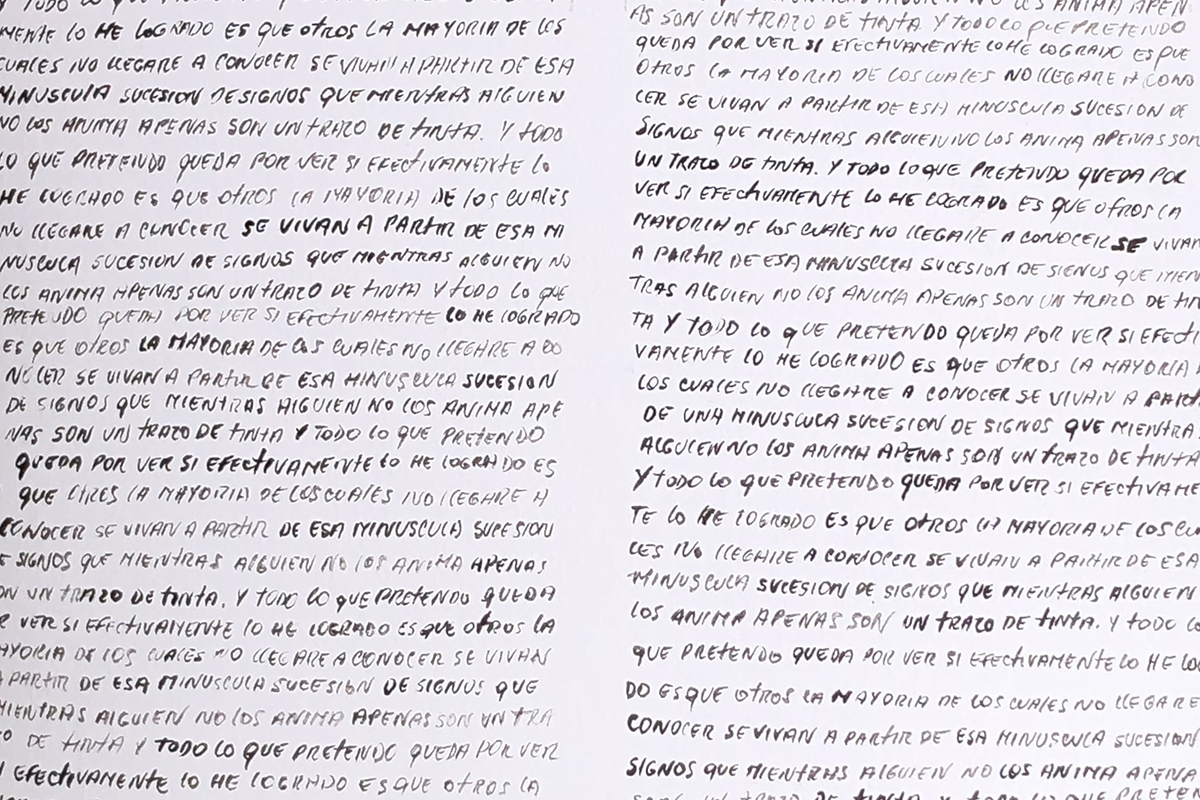 Y TODO
MENTE LO HE LOGRADO ES QUE OTROS LA MAYORIA DE LOS
CUALES NO LLEGARE A CONOCER SE VIVAN A PARTIR DE ESA
MINUSCULA SUCESION DE SIGNOS QUE MIENTRAS ALGUIEN
NO LOS ANIMA APENAS SON UN TRAZO DE TINTA. Y TODO
LO QUE PRETENDO QUEDA POR VER SI EFECTIVAMENTE LO
HE LOGRADO ES QUE OTROS LA MAYORIA DE LOS CUALES
NO LLEGARE A CONOCER SE VIVAN A PARTIR DE ESA MI
NUSCULA SUCESION DE SIGNOS QUE MIENTRAS ALGUIEN NO
LOS ANIMA APENAS SON UN TRAZO DE TINTA Y TODO LO QUE
PRETENDO QUEDA POR VER SI EFECTIVAMENTE LO HE LOGRADO
ES QUE OTROS LA MAYORIA DE LOS CUALES NO LLEGARE A CO
NOCER SE VIVAN A PARTIR DE ESA MINUSCULA SUCESION
DE SIGNOS QUE MIENTRAS ALGUIEN NO LOS ANIMA APE
NAS SON UN TRAZO DE TINTA Y TODO LO QUE PRETENDO
QUEDA POR VER SI EFECTIVAMENTE LO HE LOGRADO ES
QUE LA MAYORIA DE LOS CUALES NO LLEGARE A
CONOCER SE VIVAN A PARTIR DE ESA MINUSCULA SUPESION
E SIGNOS QUE MIENTRAS ALGUIEN NO LOS ANIMA APENAS
ON UN TRAZO DE TINTA. Y TODO LO QUE PRETENDO QUEDA
R VER SI EFECTIVAMENTE LO HE LOGRADO ES QUE OTROS LA
AYORIA DE LOS CUALES NO LLEGARE A CONOCER SE VIVAN
A PARTIR DE ESA MINUSCULA SUCESION DE SIGNOS QUE
MIENTRAS ALGUIEN NO LOS ANIMA APENAS SON UN TRA
O DE TINTA Y TODO LO QUE PRETENDO QUEDA POR VER
I EFECTIVAMENTE LO HE LOGRADO ES QUE OTROS LA
NO LOS ANIMA APEN
AS SON UN TRAZO DE TINTA Y TODO LO QUE PRETENDO
QUEDA POR VER SI EFECTIVAMENTE LO HE LOGRADO ES QUE
OTROS LA MAYORIA DE LOS CUALES NO LLEGARE A CONO
CER SE VIVAN A PARTIR DE ESA MINUSCULA SUCESION DE
SIGNOS QUE MIENTRAS ALGUIEN NO LOS ANIMA APENAS SON
UN TRAZO DE TINTA. Y TODO LO QUE PRETENDO QUEDA POR
VER SI EFECTIVAMENTE LO HE LOGRADO ES QUE OTROS LA
MAYORIA DE LOS CUALES NO LLEGARE A CONOCER SE VIVAN
A PARTIR DE ESA MINUSCULA SUCESION DE SIGNOS QUE MIEN
TRAS ALGUIEN NO LOS ANIMA APENAS SON UN TRAZO DE TIN
TA Y TODO LO QUE PRETENDO QUEDA POR VER SI EFECTI
VAMENTE LO HE LOGRADO ES QUE OTROS LA MAYORIA D
LOS CUALES NO LLEGARE A CONOCER SE VIVAN A PARTI
DE UNA MINUSCULA SUCESION DE SIGNOS QUE MIENTRA
ALGUIEN NO LOS ANIMA APENAS SON UN TRAZO DE TINTA
Y TODO LO QUE PRETENDO QUEDA POR VER SI EFECTIVAME
TE LO HE LOGRADO ES QUE OTROS LA MAYORIA DE LOS CU
LES NO LLEGARE A CONOCER SE VIVAN A PARTIR DE ESA
MINUSCULA SUCESION DE SIGNOS QUE MIENTRAS ALGUIEN
LOS ANIMA APENAS SON UN TRAZO DE TINTA. Y TODO LO
QUE PRETENDO QUEDA POR VER SI EFECTIVAMENTE LO HE LOG
DO ES QUE OTROS LA MAYORIA DE LOS CUALES NO LLEGARE
CONOCER SE VIVAN A PARTIR DE ESA MINUSCULA SUCESION
SIGNOS QUE MIENTRAS ALGUIEN NO LOS ANIMA APENA
SON UN TRAZO DE TINTA Y TODO LO QUE PRETEN